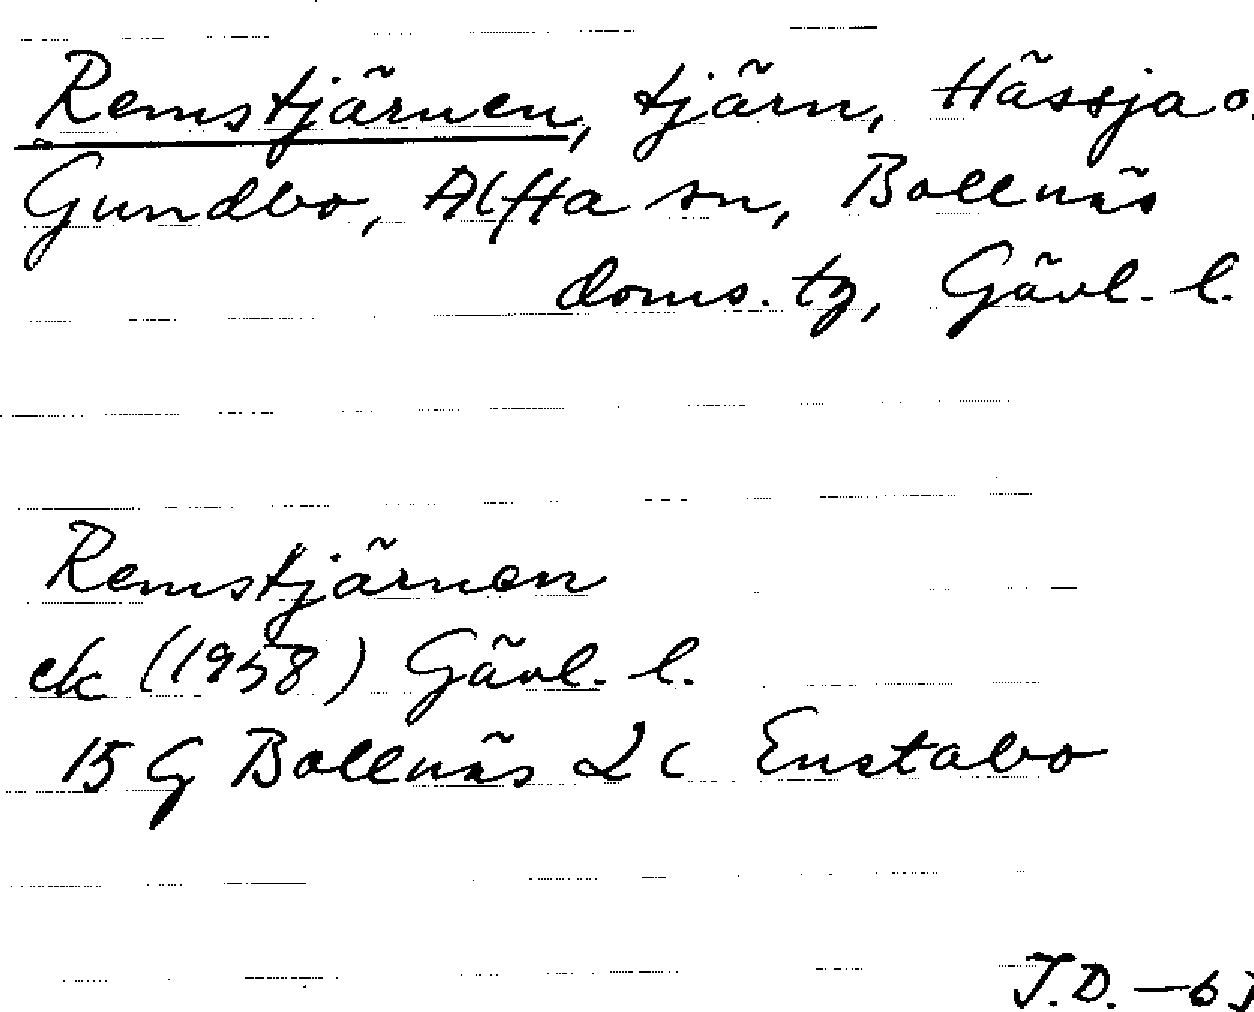 Remstjärnen, tjärn, Hässja o.
Gundbo, Alfta sn, Bollnäs
doms. tg, Gävl. l.
Remstjärnen
ek (1958) Gävl. l.
15 G Bollnäs 2 c Enstabo
J.D. — 6